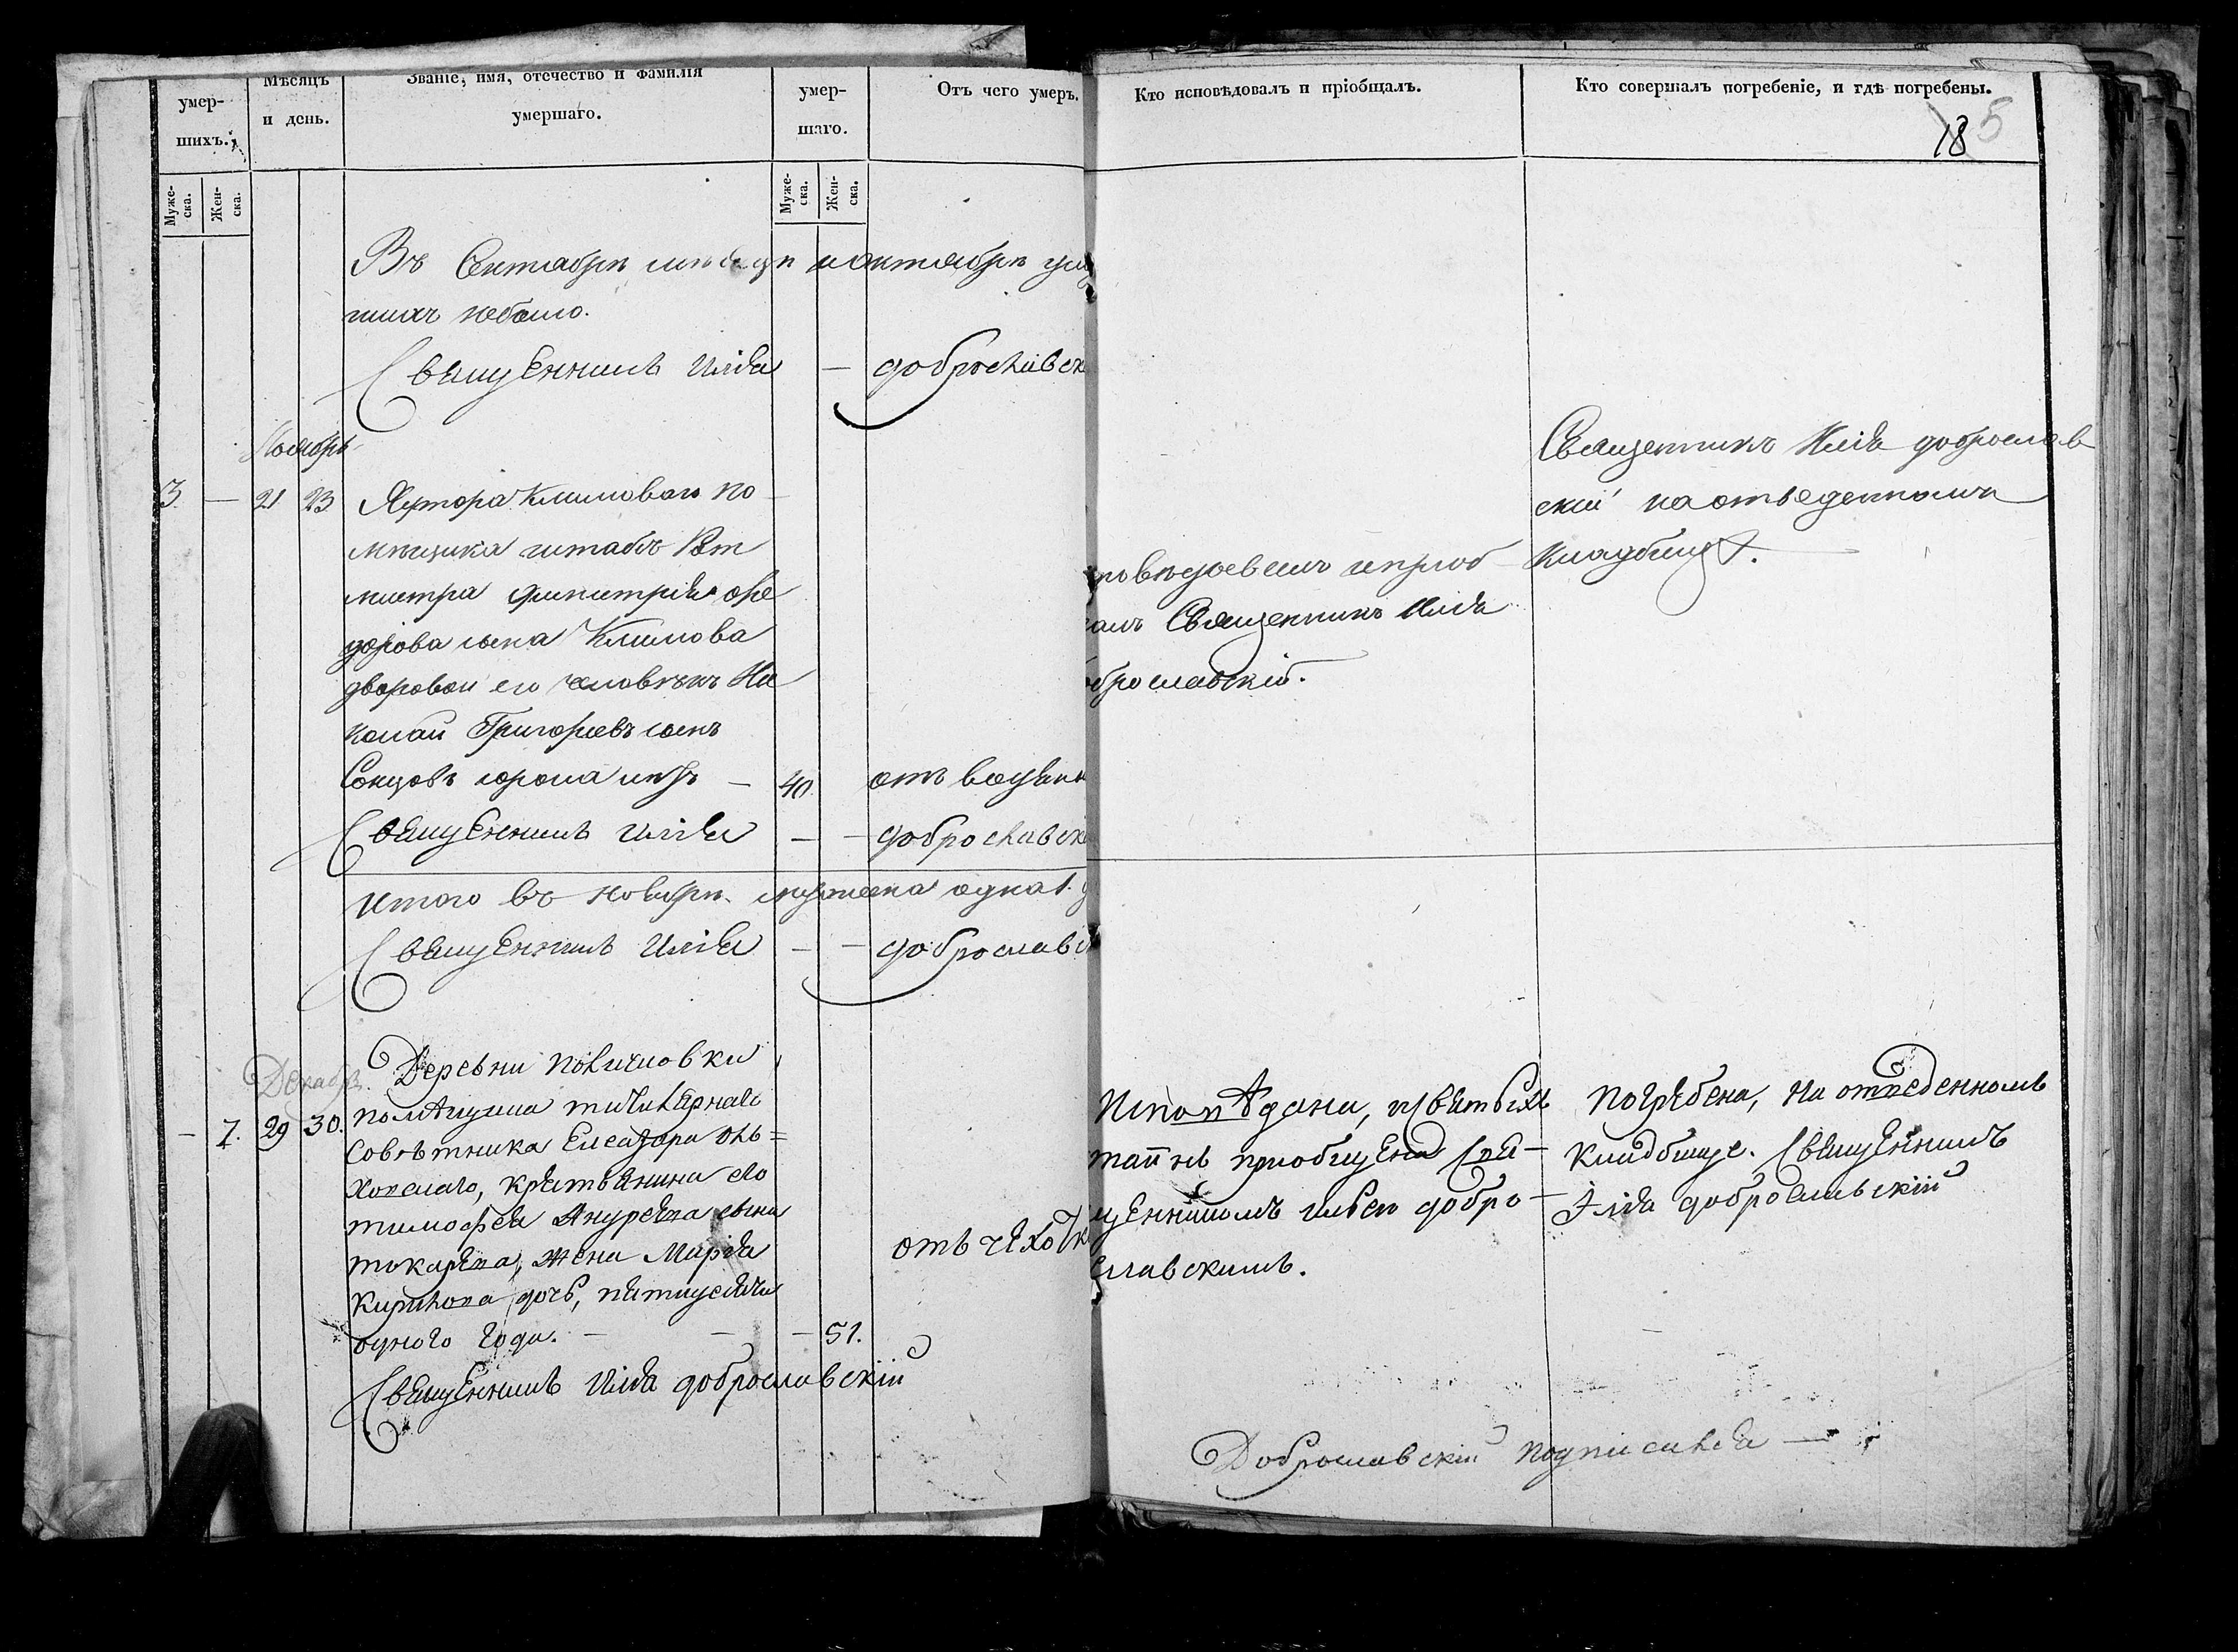 умер-
шихъ.
Мѣсяцъ
и день.
Званіе, имя, отечество и фамилія
умершаго.
умер-
шаго.
Отъ чего умеръ.
Кто исповѣдовалъ и пріобщалъ.
Кто совершалъ погребеніе, и гдѣ погребены.
18 5
Муже-
ска.
Жен-
ска.
Муже-
ска.
Жен-
ска.
Въ Сентябрѣ мѣсяцѣ и октябрѣ уме
шихъ небыло.
Священникъ Илія — доброславск
Ноябрь
3 — 21 23 Хутора Климоваго по
мѣщика штабъ Рот
мистра Димитрія Фе
дорова сына Климова
дворовой его человѣкъ Ни
колай Григорьевъ сынъ
Сонцовъ — 40. отъ водян
Священникъ Илія — — доброславскі
повѣдовалъ ипріоб
алъ Священникъ Илія
оброславскій.
Священникъ Илія доброслав
скій на отведенномъ
кладбищѣ.
Итого въ ноябрѣ мужеска одна 1.
Священникъ Илія — — доброславс
Декабрь
— 7. 29 30. Деревни
помѣщика титулярнаго
Совѣтника Елеазара оль=
ховскаго, крестьянина его
тимофея Андреева сына
токарева, жена Марія
Кирилова дочь, пятидесяти
одного года. — — — 51.
отъ чехотк
Священникъ Илія доброславскій
Исповѣдана, и святыхъ
таинъ приобщена Свя-
щенникомъ Иліею добро-
славскимъ.
Погребена, на отведенномъ
кладбище. Священникъ
Илія доброславскій
Доброславскій подписался —